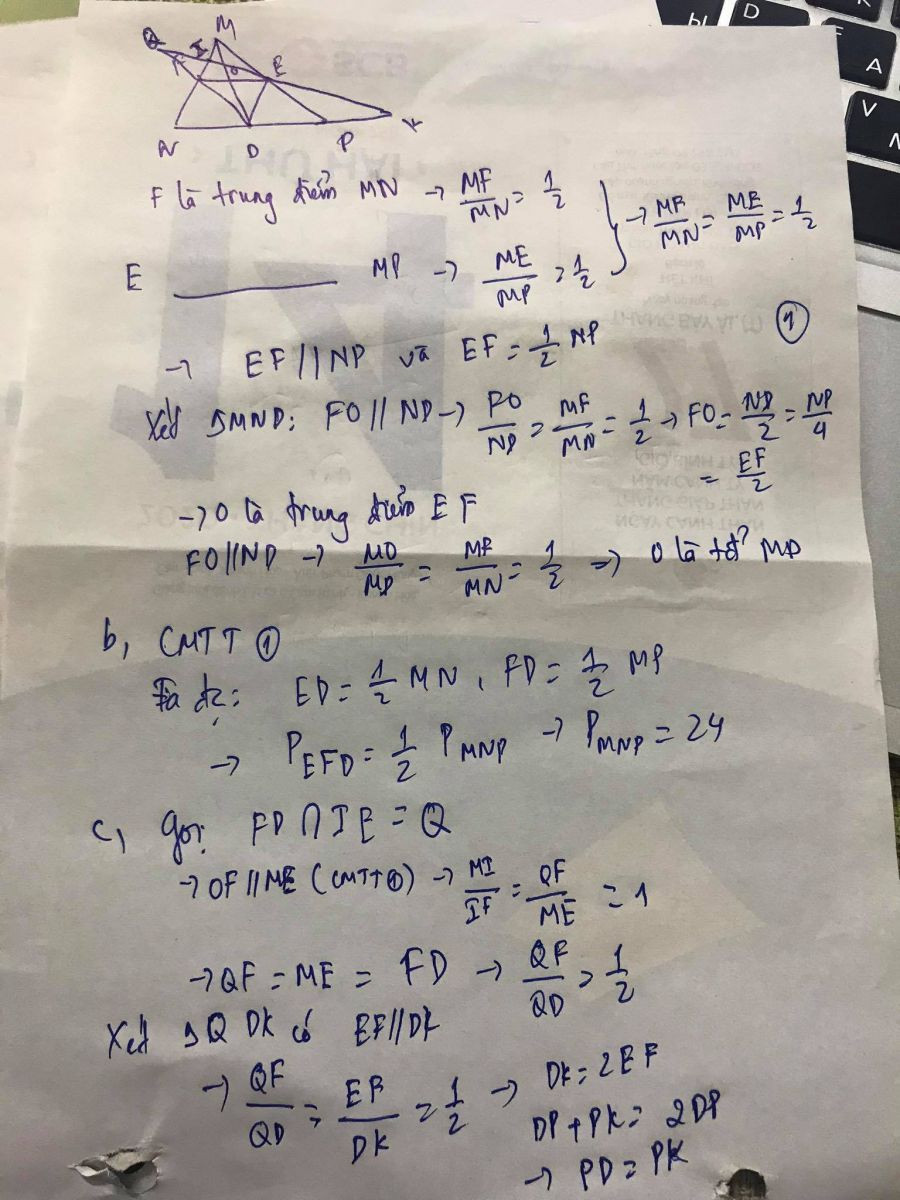 Q I M
F O E
N D P K
F là trung điểm MN → MF/MN = 1/2
E ______ MP → ME/MP = 1/2 } → MF/MN = ME/MP = 1/2
→ EF // NP và EF = 1/2 NP ①
Xét ΔMND: FO // ND → FO/ND = MF/MN = 1/2 → FO = ND/2 = NP/4
= EF/2
→ O là trung điểm EF
FO // ND → MO/MD = MF/MN = 1/2 → O là tđ MD
b, CMTT ①
Ta đc: ED = 1/2 MN, FD = 1/2 MP
→ P EFD = 1/2 P MNP → P MNP = 24
c, Gọi FD ∩ IE = Q
→ QF // ME (CMTT①) → MI/IF = QF/ME = 1
→ QF = ME = FD → QF/QD = 1/2
Xét ΔQDK có EF // DK
→ QF/QD = EF/DK = 1/2 → DK = 2EF
DP + PK = 2DP
→ PD = PK